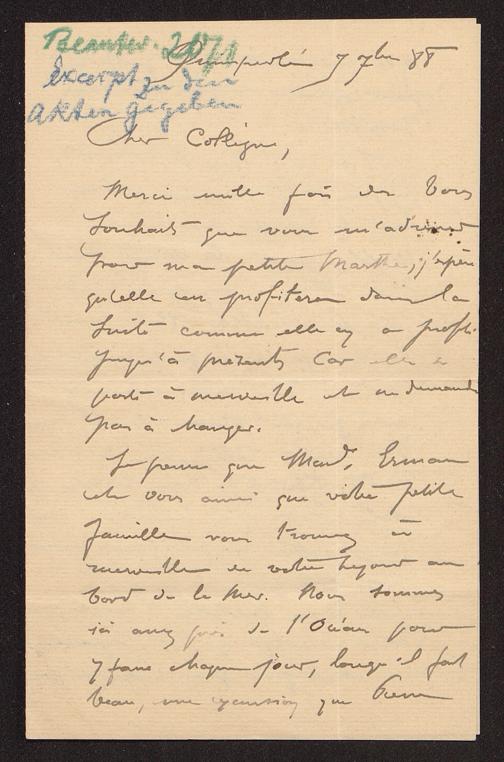 Beantw. 20/9
Excerpt zu den
Akten gegeben
Quimperlé 7 7bre 88
Cher Collègue,
Merci mille fois des bons
souhaits que vous m'adressez
pour ma petite Marthe; j'espère
qu'elle en profitera dans la
suite comme elle en a profité
jusqu'à présent, car elle se
porte à merveille et ne demande
pas à changer.
Je pense que Mad. Erman
et vous ainsi que votre petite
famille vous trouvez à
merveille de votre séjour au
bord de la mer. Nous sommes
ici assez près de l'Océan pour
y faire chaque jour, lorsqu'il fait
beau, une excursion que